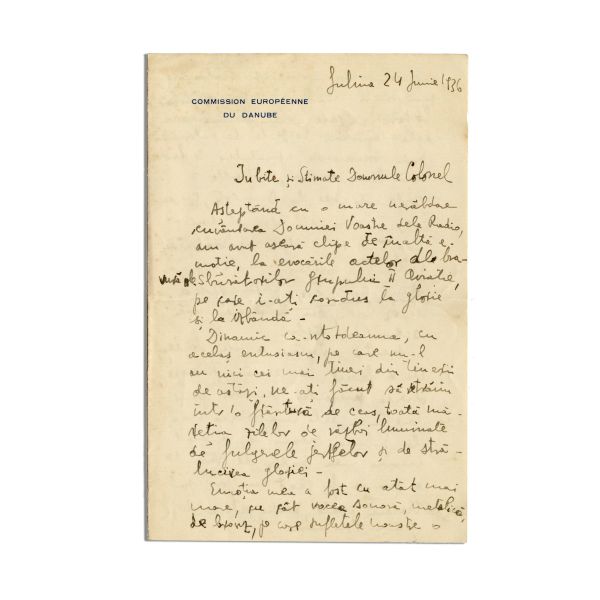 Sulina 24 Junie 1936
COMMISSION EUROPÉENNE
DU DANUBE
Iubite și Stimate Domnule Colonel
Așteptând cu o mare nerăbdare
cuvântarea Domniei Voastre dela Radio,
am avut aseară clipe de înaltă e-
moție, la evocările actelor de bra-
vură ale sburătorilor Grupului II Aviatic,
pe care i-ați condus la glorie
și la izbândă -
Dinamic ca-ntotdeauna, cu
acelaș entusiasm, pe care nu-l
au nici cei mai tineri din tinerii
de astăzi, ne-ați făcut să trăim
într'o frântură de ceas, toată mă-
reția zilelor de război luminate
de fulgerele jertfelor și de stră-
lucirea gloriei -
Emoția mea a fost cu atât mai
mare, cu cât vocea sonoră, metalică,
de bronz, pe care sufletele noastre o